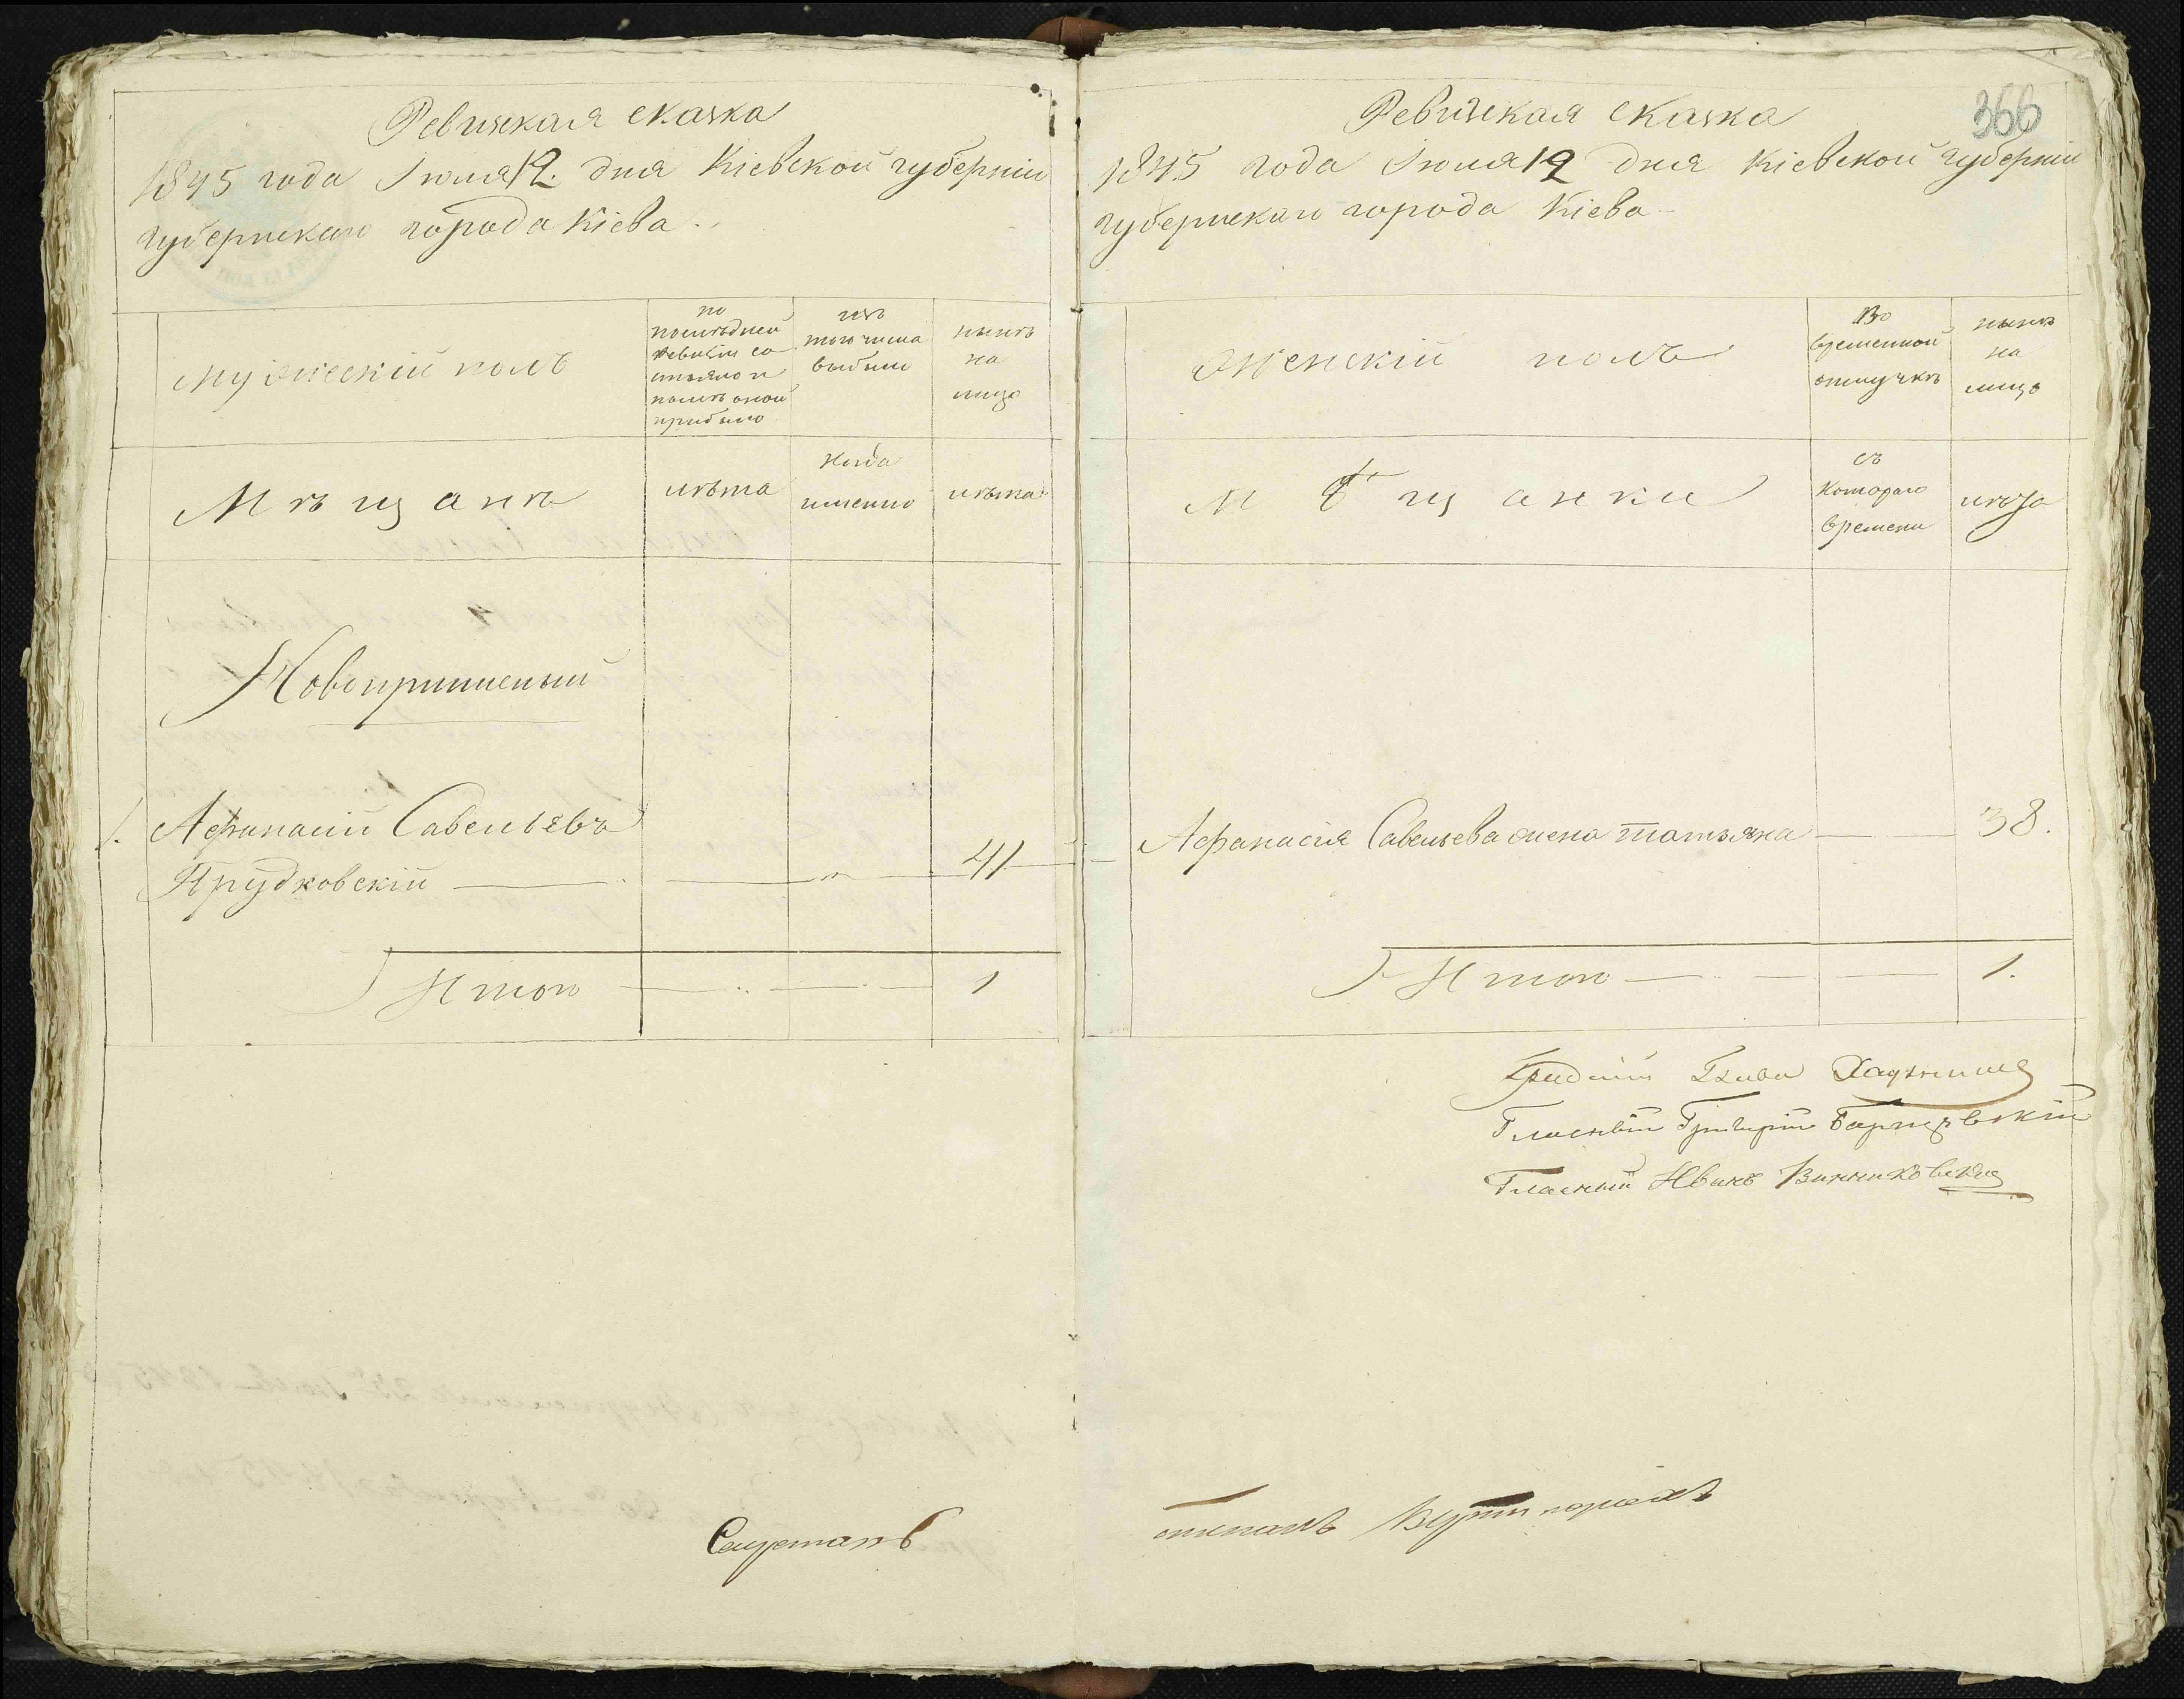 Ревизская сказка
1845 года Іюля 12. дня Кіевской губерніи
губернскаго города Кіева
мужескій полъ
по
последней
ревизіи со
стояло и
после оной
прибыло
изъ
того числа
выбыли
нынѣ
на
лицо
Мѣщанѣ
лѣта
когда
именно
лѣта
Новопришеный
1. Афанасий Савельевъ
Прудковскій 41
Итого 1
366
Ревизская сказка
1845 года Іюля 12 дня Кіевской губерніи
губернскаго города Кіева
Женскій полъ
Во
временной
отлучкѣ
нынѣ
на
лицо
Мѣщанки
съ
котораго
времени
лѣта
Афанасія Савельева жена татьяна 38.
Итого 1.
Градскій Глава
Гласный Григорій
Гласный Иванъ Винниковскій
Секретарь